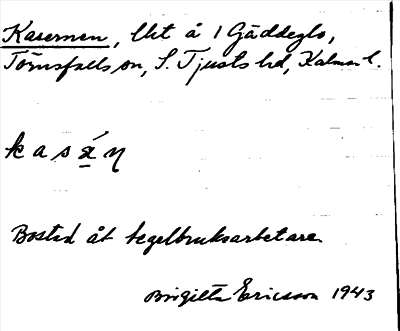 Kasernen, lht å 1 Gäddeglo,
Törnsfalls sn, S. Tjusts hd, Kalmar l.
Bostad åt tegelbruksarbetare.
Birgitta Ericsson 1943